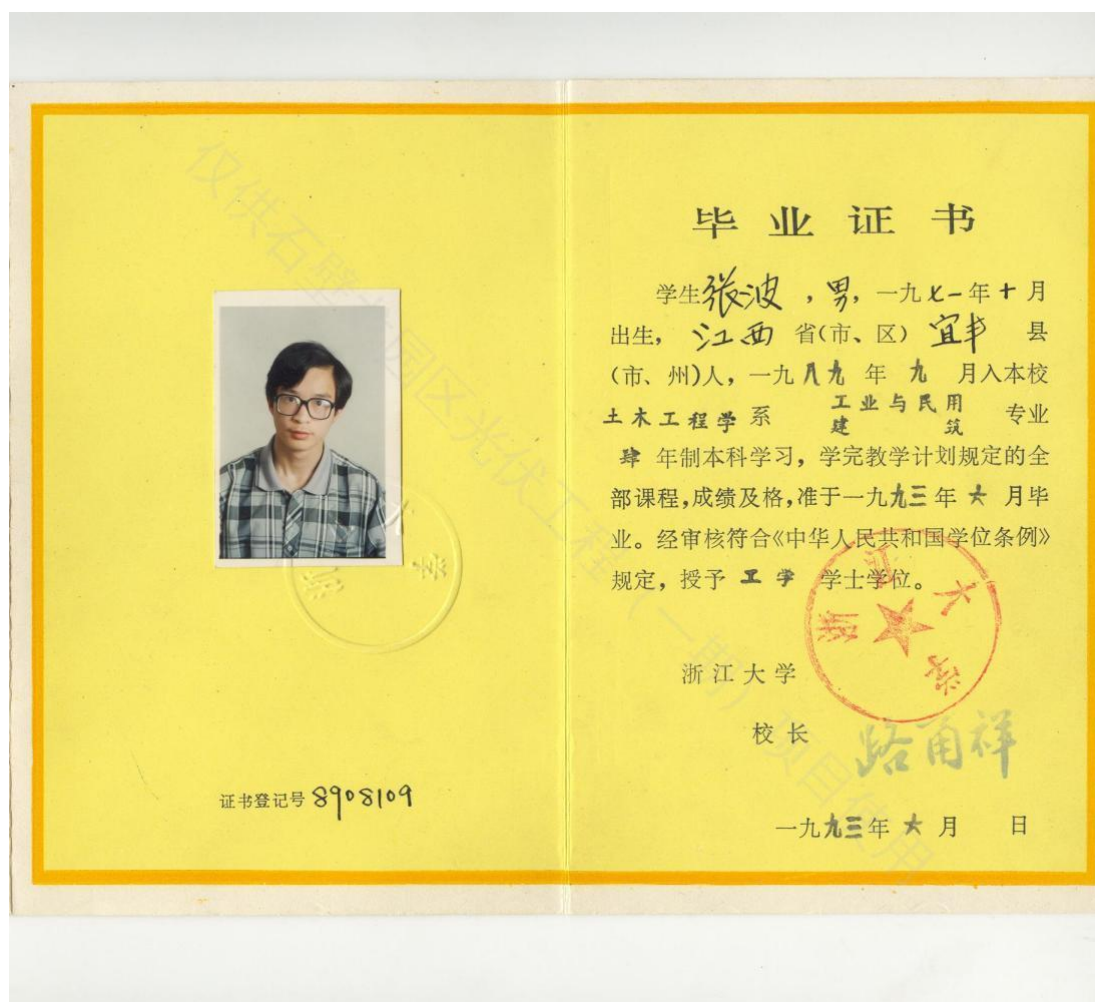 仅供石壁太阳园区光伏工程（一期）项目使用
大学
浙
证书登记号 8908109
毕业证书
学生张波，男，一九七一年十月
出生，江西省(市、区)宜丰县
(市、州)人，一九八九年九月入本校
土木工程学系 工业与民用建筑 专业
肆年制本科学习，学完教学计划规定的全
部课程，成绩及格，准于一九九三年六月毕
业。经审核符合《中华人民共和国学位条例》
规定，授予工学学士学位。
浙江大学
浙江大学
校长 路甬祥
一九九三年六月 日